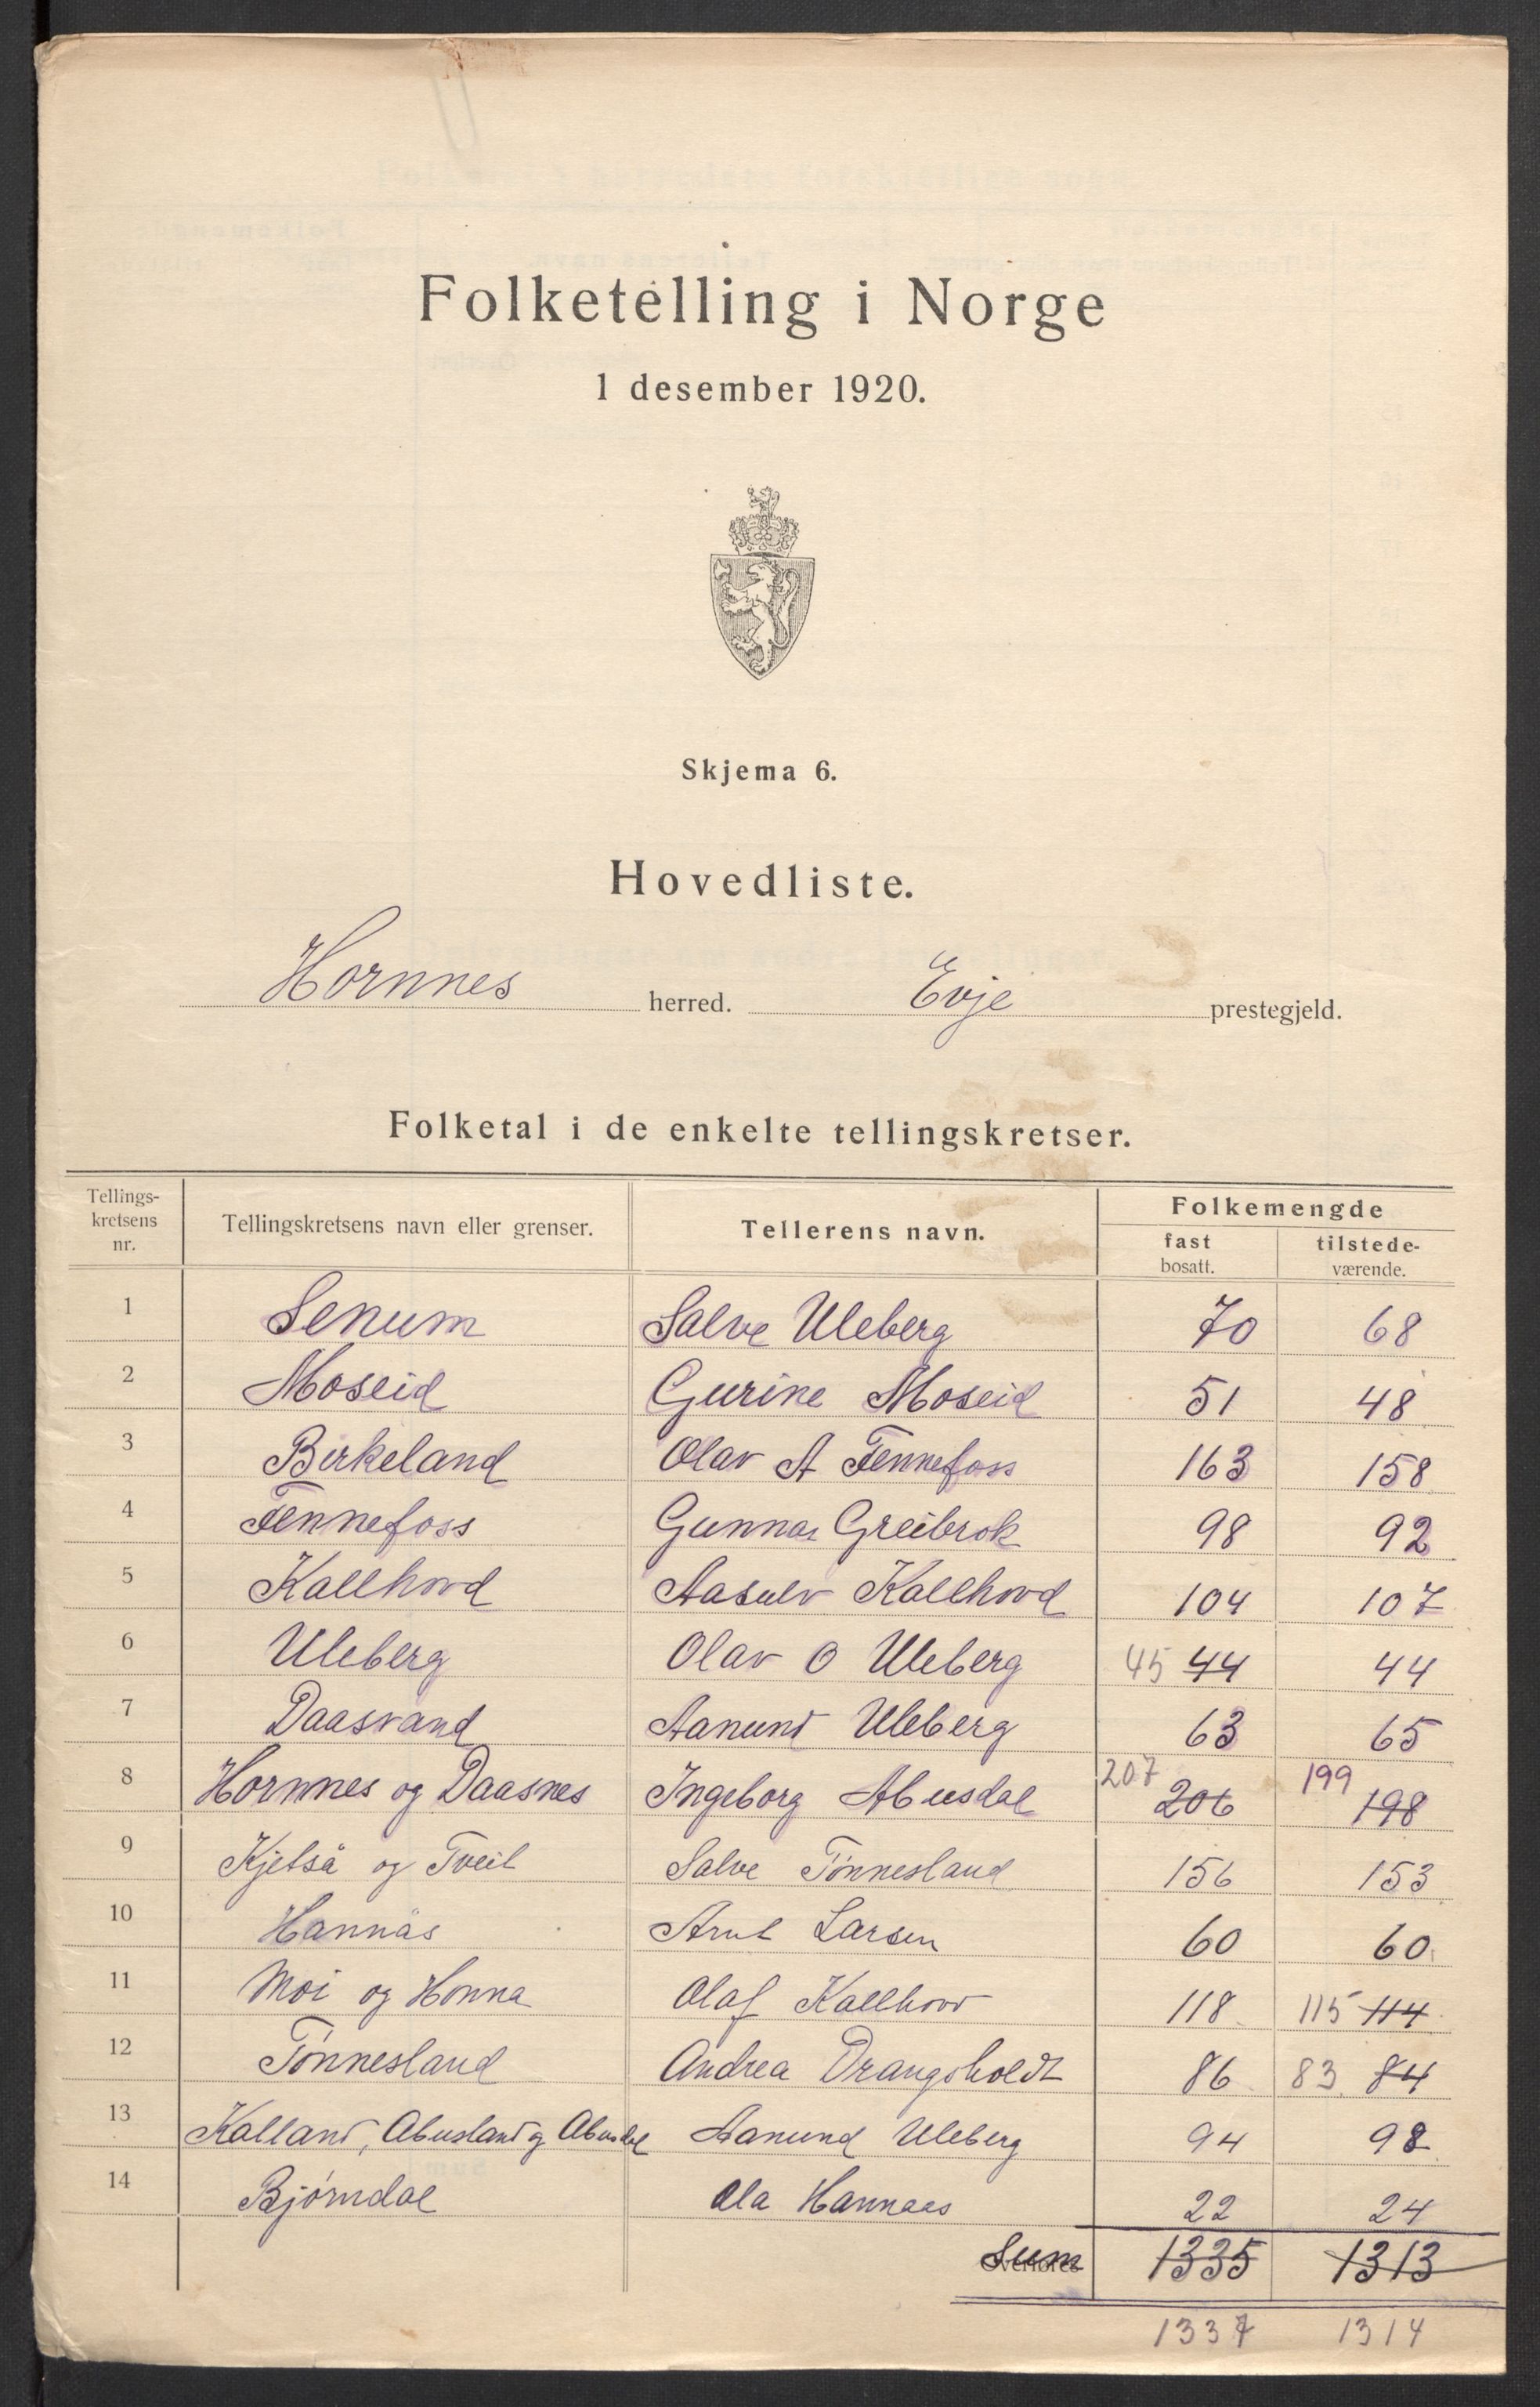 Folketelling i Norge
1 desember 1920.
Skjema 6.
Hovedliste.
Hornnes herred. Evje prestegjeld.
Folketal i de enkelte tellingskretser.
Tellings-kretsens nr. Tellingskretsens navn eller grenser. Tellerens navn. Folkemengde fast bosatt. tilstede-værende.
1 Senum Salve Uleberg 70 68
2 Moseid Gurine Moseid 51 48
3 Birkeland Olav A Fennefoss 163 158
4 Fennefoss Gunnar Greibrok 98 92
5 Kallhovd Aasulv Kallhovd 104 107
6 Uleberg Olav O Uleberg 45 44 44
7 Daasvand Aanund Uleberg 63 65
8 Hornnes og Daasnes Ingeborg Abusdal 207 206 199 198
9 Kjetså og Tveit Salve Tønnesland 156 153
10 Hannås Arnt Larsen 60 60
11 Moi og Honna Olaf Kallhovd 118 115 114
12 Tønnesland Andrea Drangsholdt 86 83 84
13 Kalland, Abusland og Abusdal Aanund Uleberg 94 98
14 Bjørndal Ola Hannaas 22 24
Sum 1335 1313
1337 1314